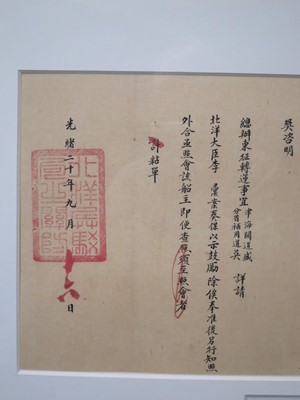 獎咨明
總辦東征轉運事宜津海關道盛分省補用道吳詳請
北洋大臣李彙案奏保以示鼓勵除俟奉准後另行知照
外合亟照會該船主即便查照須至照會者
計粘單
光緒二十年九月十六日